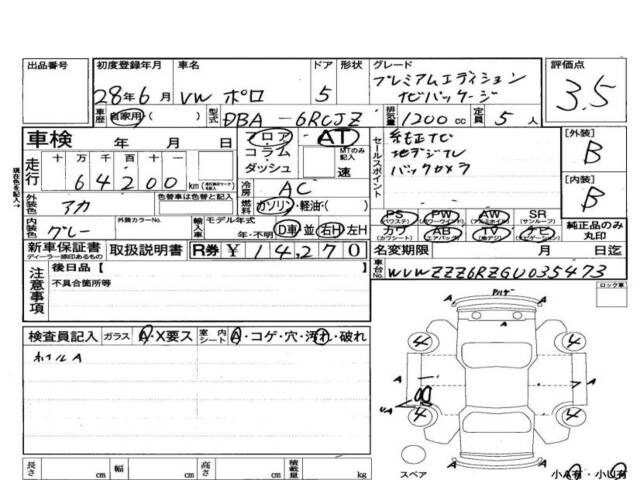 出品番号 初度登録年月 車名 ドア 形状 グレード 評価点
28年6月 VW ポロ 5 プレミアムエディション ナビパッケージ 3.5
車歴 自家用( ) 型式 DBA-6RCJZ 排気量 1200cc 定員 5人
車検 年 月 日 フロア AT
コラム MTのみ記入
ダッシュ 速
走行 十 万 千 百 十
64200 km
セールスポイント
純正ナビ
地デジTV
バックカメラ
[外装] B
[内装] B
現在色を記入→
外装色 アカ 色替車は色替と記入
冷房 AC
ガソリン・軽油・( )
内装色 グレー 外装カラーNo. 輸入車 モデル年式 年・不明 D車 並 右H 左H
PS PW AW SR
(パワステ) (パワーウインド) (アルミホイル) (サンルーフ)
カワ AB TV ナビ
(カワシート) (エアバッグ) (地デジ) (ナビゲーション)
純正品のみ丸印
新車保証書 取扱説明書 R券 ¥14,270
ディーラー捺印あるもの
名変期限 月 日迄
車台No. WVWZZZ6RZGU035473
注意事項 後日品【 】
不具合箇所等
ロック車
検査員記入 ガラス A・X要ス 室内シート A・コゲ・穴・汚れ・破れ
ホイルA
A A
4 4
A A A
4 4
A A
スペア
長さ cm 幅 cm 高さ cm 積載量 kg
小A有・小U有